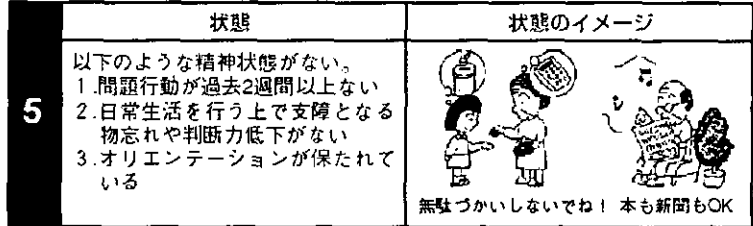 状態
状態のイメージ
5
以下のような精神状態がない。
1.問題行動が過去2週間以上ない
2.日常生活を行う上で支障となる
物忘れや判断力低下がない
3.オリエンテーションが保たれて
いる
無駄づかいしないでね! 本も新聞もOK